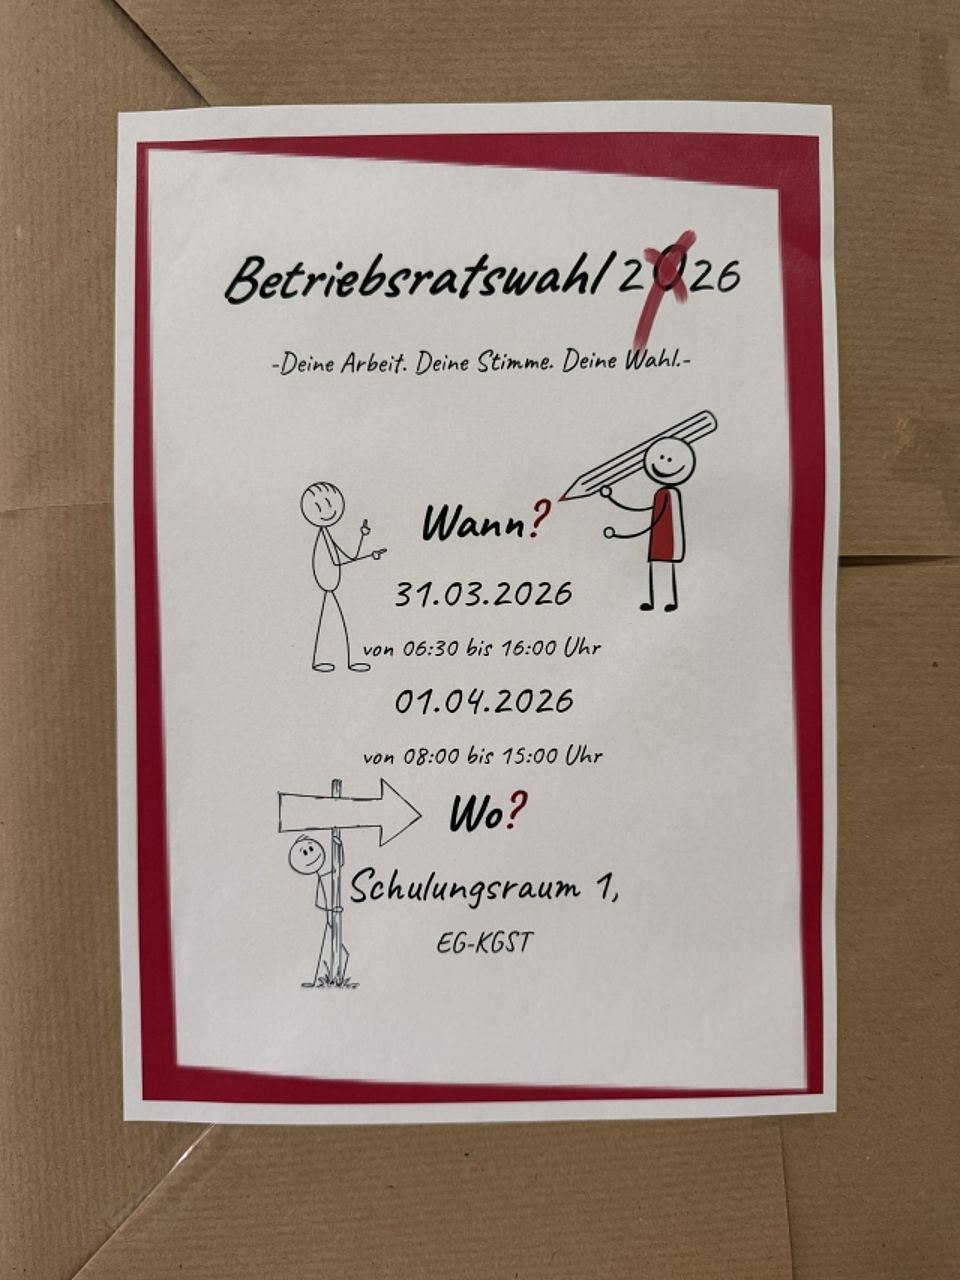 Betriebsratswahl 2026
-Deine Arbeit. Deine Stimme. Deine Wahl.-
Wann?
31.03.2026
von 06:30 bis 16:00 Uhr
01.04.2026
von 08:00 bis 15:00 Uhr
Wo?
Schulungsraum 1,
EG-KGST